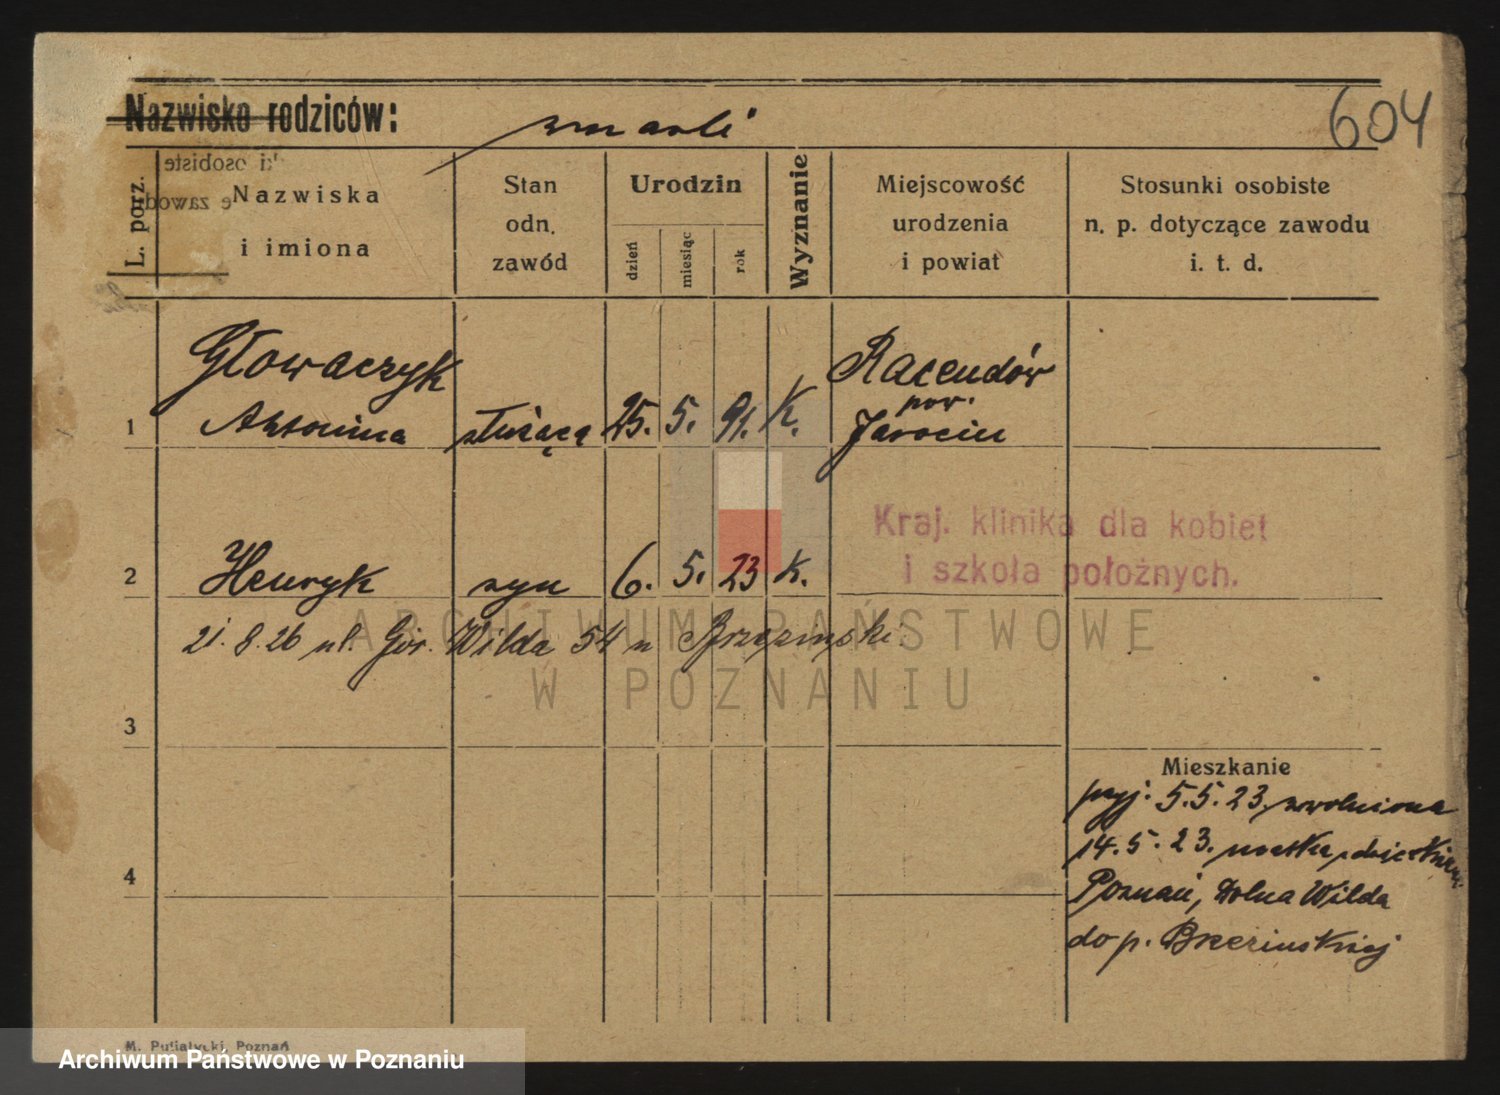 Nazwisko rodziców: zmarli
604
L. porz.
Nazwiska
i imiona
Stan
odn.
zawód
Urodzin
dzień miesiąc rok
Wyznanie
Miejscowość
urodzenia
i powiat
Stosunki osobiste
n. p. dotyczące zawodu
i. t. d.
Głowaczyk
1 Antonina służąca 25. 5. 91. K.
Racendów
pow.
Jarocin
Kraj. klinika dla kobiet
i szkoła położnych.
2 Henryk syn 6. 5. 23 K.
21. 8. 26 ul. Gór. Wilda 54 u
ARCHIWUM PAŃSTWOWE
W POZNANIU
3
Mieszkanie
przyj. 5.5.23. zwolniona
14.5.23. matka
4
Poznań, Dolna Wilda
do p. Brzezińskiej
M. Putiatycki, Poznań
Archiwum Państwowe w Poznaniu